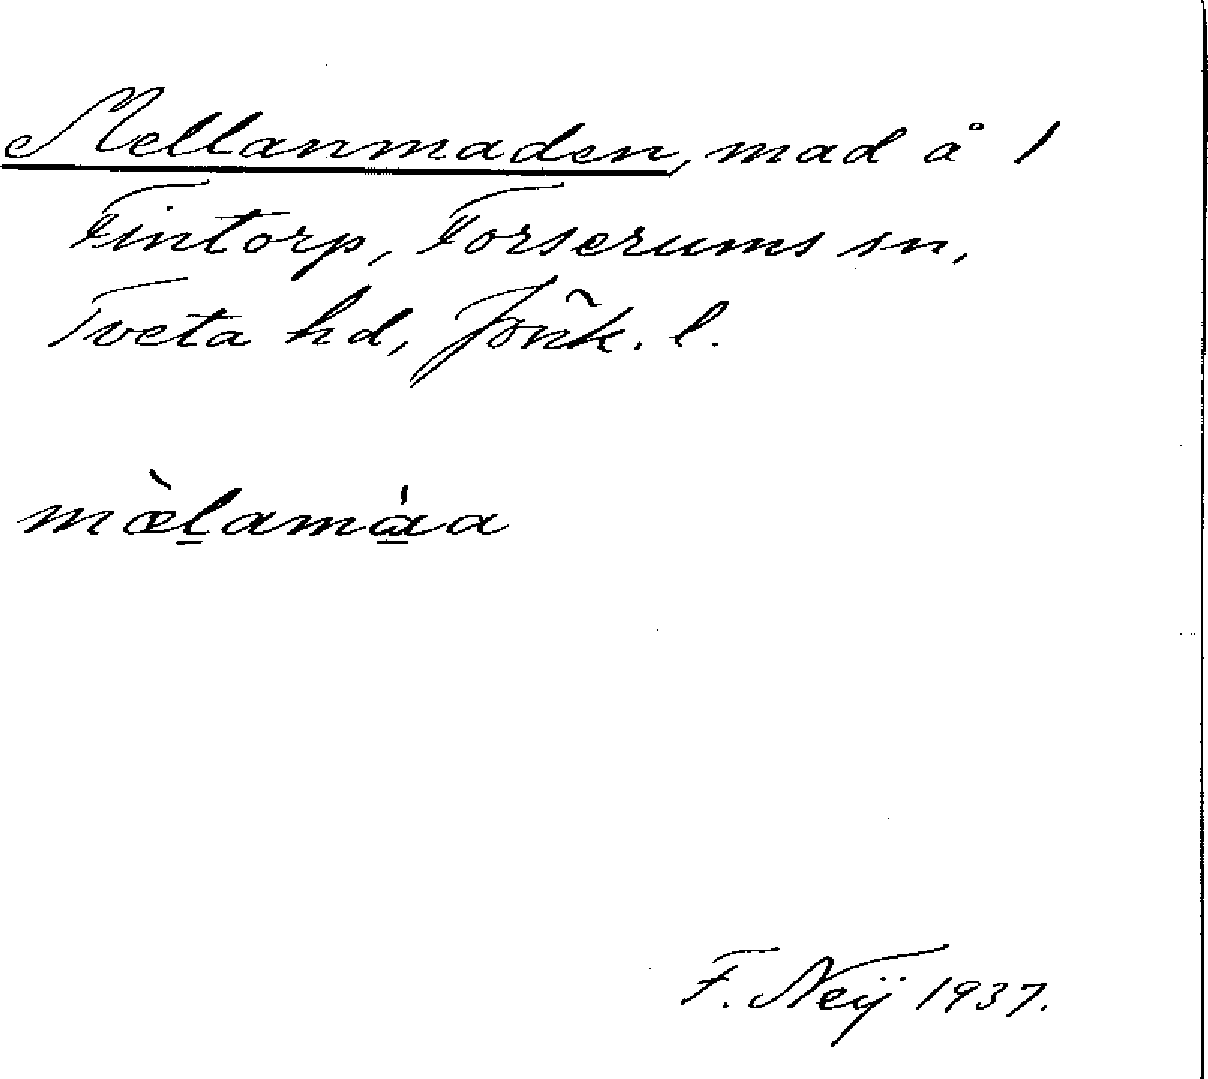 Mellanmaden, mad å 1
Fintorp, Forserums sn,
Tveta hd, Jönk. l.
mæ̀l̠ama̠̍a
F. Neij 1937.